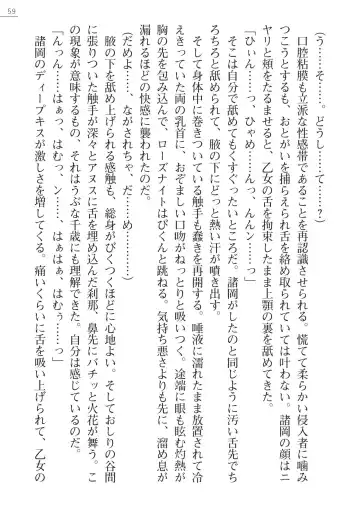 59
(う……そ……。どうし……て……?)
　口腔粘膜も立派な性感帯であることを再認識させられる。慌てて柔らかい侵入者に噛み
つこうとするも、おとがいを捕らえられ舌を絡め取られていては叶わない。諸岡の顔はニ
ヤリと頬をたるませると、乙女の舌を拘束したまま上顎の裏を舐めてきた。
「ひぃん……っ、ひゃめ……んっ、んんン……っ」
　そこは自分で舐めてもくすぐったいところだ。諸岡がしたのと同じように汚い舌先でち
ろちろと舐められて、腋の下にどっと熱い汗が噴き出す。
　そして身体中に巻きついている触手も蠢きを再開する。唾液に濡れたまま放置されて冷
えきっていた両の乳首に、おぞましい口吻がねっとりと吸いつく。途端に眼も眩む灼熱が
胸の先を包み込んで、ローズナイトはびくんと跳ねる。気持ち悪さよりも先に、溜め息が
漏れるほどの快感に襲われたのだ。
(だめよ……、ながされちゃ、だめ……)
　腋の下を舐め上げられる感触も、総身がびくつくほどに心地よい。そしておしりの谷間
に張りついた触手が深々とアヌスに舌を埋め込んだ刹那、鼻先にバチッと火花が舞う。こ
の現象が意味するもの、それはうぶな千歳にも理解できた。自分は感じているのだ。
「んっん……はぁっ、はむっ、ン……、はぁはぁ、はむぅ……っ」
　諸岡のディープキスが激しさを増してくる。痛いくらいに舌を吸い上げられて、乙女の